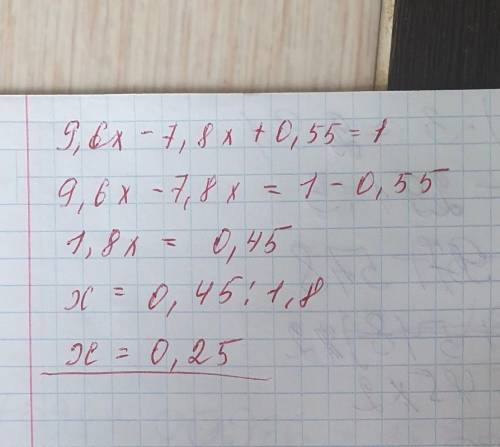 9,6x - 7,8x + 0,55 = 1
9,6x - 7,8x = 1 - 0,55
1,8x = 0,45
x = 0,45 : 1,8
x = 0,25